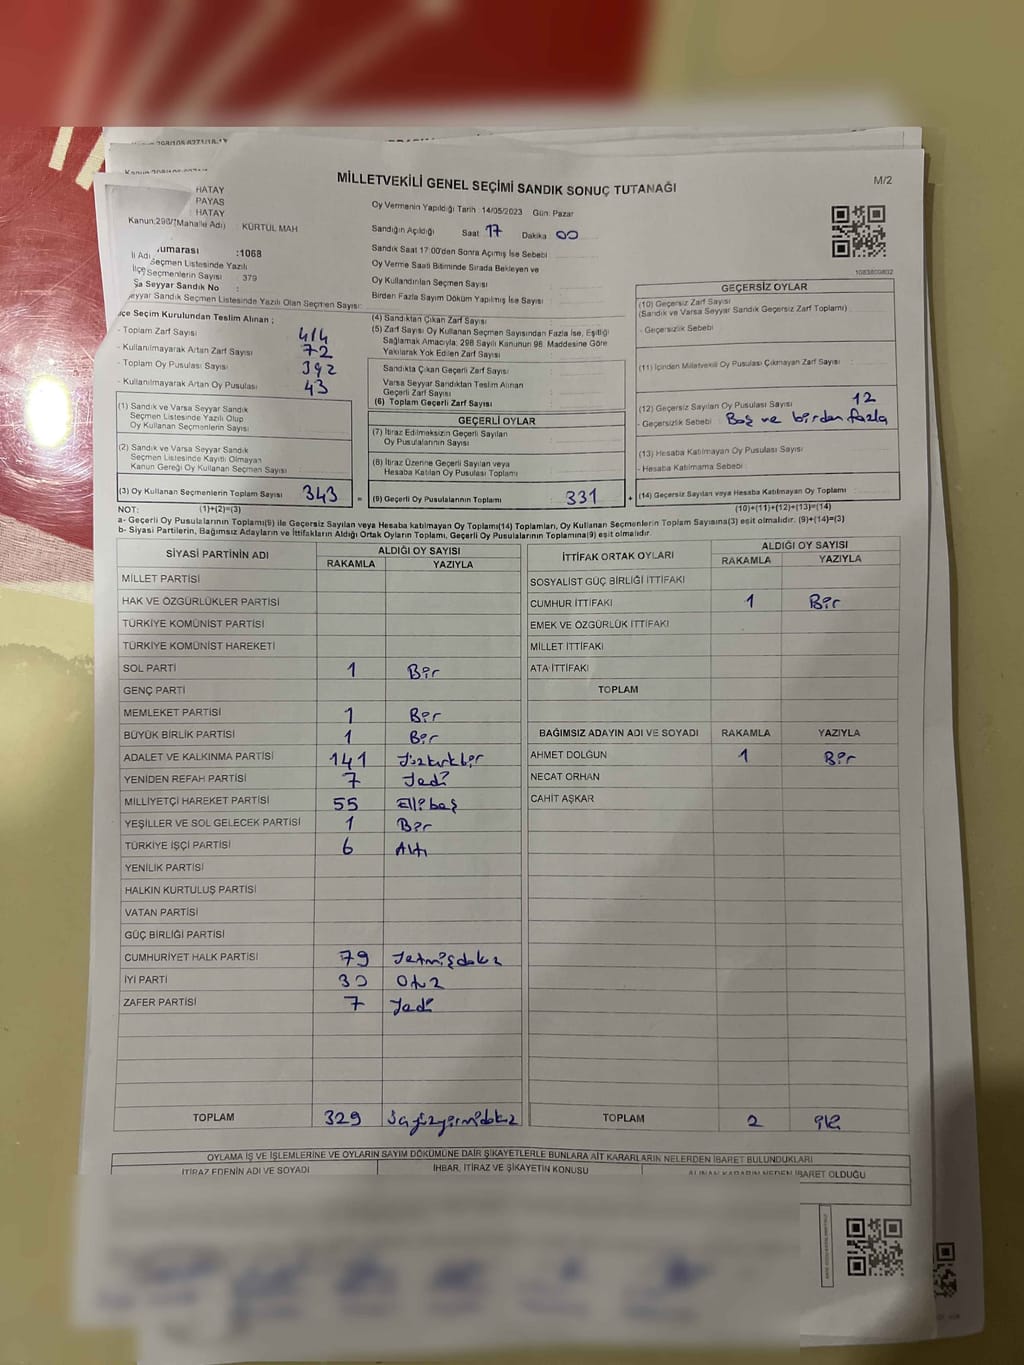 MİLLETVEKİLİ GENEL SEÇİMİ SANDIK SONUÇ TUTANAĞI
M/2
HATAY
PAYAS
HATAY
Kanun:298/ (Mahalle Adı) KÜRTÜL MAH
umarası :1068
İl Adı Seçmen Listesinde Yazılı
İlçe Seçmenlerin Sayısı : 379
Şa Seyyar Sandık No :
eyyar Sandık Seçmen Listesinde Yazılı Olan Seçmen Sayısı:
Oy Vermenin Yapıldığı Tarih :14/05/2023 Gün: Pazar
Sandığın Açıldığı Saat 17 Dakika 00
Sandık Saat 17:00'den Sonra Açılmış İse Sebebi
Oy Verme Saati Bitiminde Sırada Bekleyen ve
Oy Kullandırılan Seçmen Sayısı
Birden Fazla Sayım Döküm Yapılmış İse Sayısı
1083809802
çe Seçim Kurulundan Teslim Alınan ;
- Toplam Zarf Sayısı 414
- Kullanılmayarak Artan Zarf Sayısı 72
- Toplam Oy Pusulası Sayısı 392
- Kullanılmayarak Artan Oy Pusulası 43
(1) Sandık ve Varsa Seyyar Sandık
Seçmen Listesinde Yazılı Olup
Oy Kullanan Seçmenlerin Sayısı
(2) Sandık ve Varsa Seyyar Sandık
Seçmen Listesinde Kayıtlı Olmayan
Kanun Gereği Oy Kullanan Seçmen Sayısı
(3) Oy Kullanan Seçmenlerin Toplam Sayısı 343
(4) Sandıktan Çıkan Zarf Sayısı
(5) Zarf Sayısı Oy Kullanan Seçmen Sayısından Fazla İse, Eşitliği
Sağlamak Amacıyla; 298 Sayılı Kanunun 98. Maddesine Göre
Yakılarak Yok Edilen Zarf Sayısı
Sandıkta Çıkan Geçerli Zarf Sayısı
Varsa Seyyar Sandıktan Teslim Alınan
Geçerli Zarf Sayısı
(6) Toplam Geçerli Zarf Sayısı
GEÇERLİ OYLAR
(7) İtiraz Edilmeksizin Geçerli Sayılan
Oy Pusulalarının Sayısı
(8) İtiraz Üzerine Geçerli Sayılan veya
Hesaba Katılan Oy Pusulası Toplamı
= (9) Geçerli Oy Pusulalarının Toplamı 331
GEÇERSİZ OYLAR
(10) Geçersiz Zarf Sayısı
(Sandık ve Varsa Seyyar Sandık Geçersiz Zarf Toplamı)
- Geçersizlik Sebebi
(11) İçinden Milletvekili Oy Pusulası Çıkmayan Zarf Sayısı
(12) Geçersiz Sayılan Oy Pusulası Sayısı 12
- Geçersizlik Sebebi : Boş ve birden fazla
(13) Hesaba Katılmayan Oy Pusulası Sayısı
- Hesaba Katılmama Sebebi
+ (14) Geçersiz Sayılan veya Hesaba Katılmayan Oy Toplamı
NOT: (1)+(2)=(3)
(10)+(11)+(12)+(13)=(14)
a- Geçerli Oy Pusulalarının Toplamı(9) ile Geçersiz Sayılan veya Hesaba katılmayan Oy Toplamı(14) Toplamları, Oy Kullanan Seçmenlerin Toplam Sayısına(3) eşit olmalıdır. (9)+(14)=(3)
b- Siyasi Partilerin, Bağımsız Adayların ve İttifakların Aldığı Ortak Oyların Toplamı, Geçerli Oy Pusulalarının Toplamına(9) eşit olmalıdır.
SİYASİ PARTİNİN ADI ALDIĞI OY SAYISI
RAKAMLA YAZIYLA
MİLLET PARTİSİ
HAK VE ÖZGÜRLÜKLER PARTİSİ
TÜRKİYE KOMÜNİST PARTİSİ
TÜRKİYE KOMÜNİST HAREKETİ
SOL PARTİ 1 Bir
GENÇ PARTİ
MEMLEKET PARTİSİ 1 Bir
BÜYÜK BİRLİK PARTİSİ 1 Bir
ADALET VE KALKINMA PARTİSİ 141 Yüzkırkbir
YENİDEN REFAH PARTİSİ 7 Yedi
MİLLİYETÇİ HAREKET PARTİSİ 55 Ellibeş
YEŞİLLER VE SOL GELECEK PARTİSİ 1 Bir
TÜRKİYE İŞÇİ PARTİSİ 6 Altı
YENİLİK PARTİSİ
HALKIN KURTULUŞ PARTİSİ
VATAN PARTİSİ
GÜÇ BİRLİĞİ PARTİSİ
CUMHURİYET HALK PARTİSİ 79 Yetmişdokuz
İYİ PARTİ 30 Otuz
ZAFER PARTİSİ 7 Yedi
TOPLAM 329 Üçyüzyirmidokuz
İTTİFAK ORTAK OYLARI ALDIĞI OY SAYISI
RAKAMLA YAZIYLA
SOSYALİST GÜÇ BİRLİĞİ İTTİFAKI
CUMHUR İTTİFAKI 1 Bir
EMEK VE ÖZGÜRLÜK İTTİFAKI
MİLLET İTTİFAKI
ATA İTTİFAKI
TOPLAM
BAĞIMSIZ ADAYIN ADI VE SOYADI RAKAMLA YAZIYLA
AHMET DOLĞUN 1 Bir
NECAT ORHAN
CAHİT AŞKAR
TOPLAM 2 iki
OYLAMA İŞ VE İŞLEMLERİNE VE OYLARIN SAYIM DÖKÜMÜNE DAİR ŞİKAYETLERLE BUNLARA AİT KARARLARIN NELERDEN İBARET BULUNDUKLARI
İTİRAZ EDENİN ADI VE SOYADI İHBAR, İTİRAZ VE ŞİKAYETİN KONUSU ALINAN KARARIN NEDEN İBARET OLDUĞU